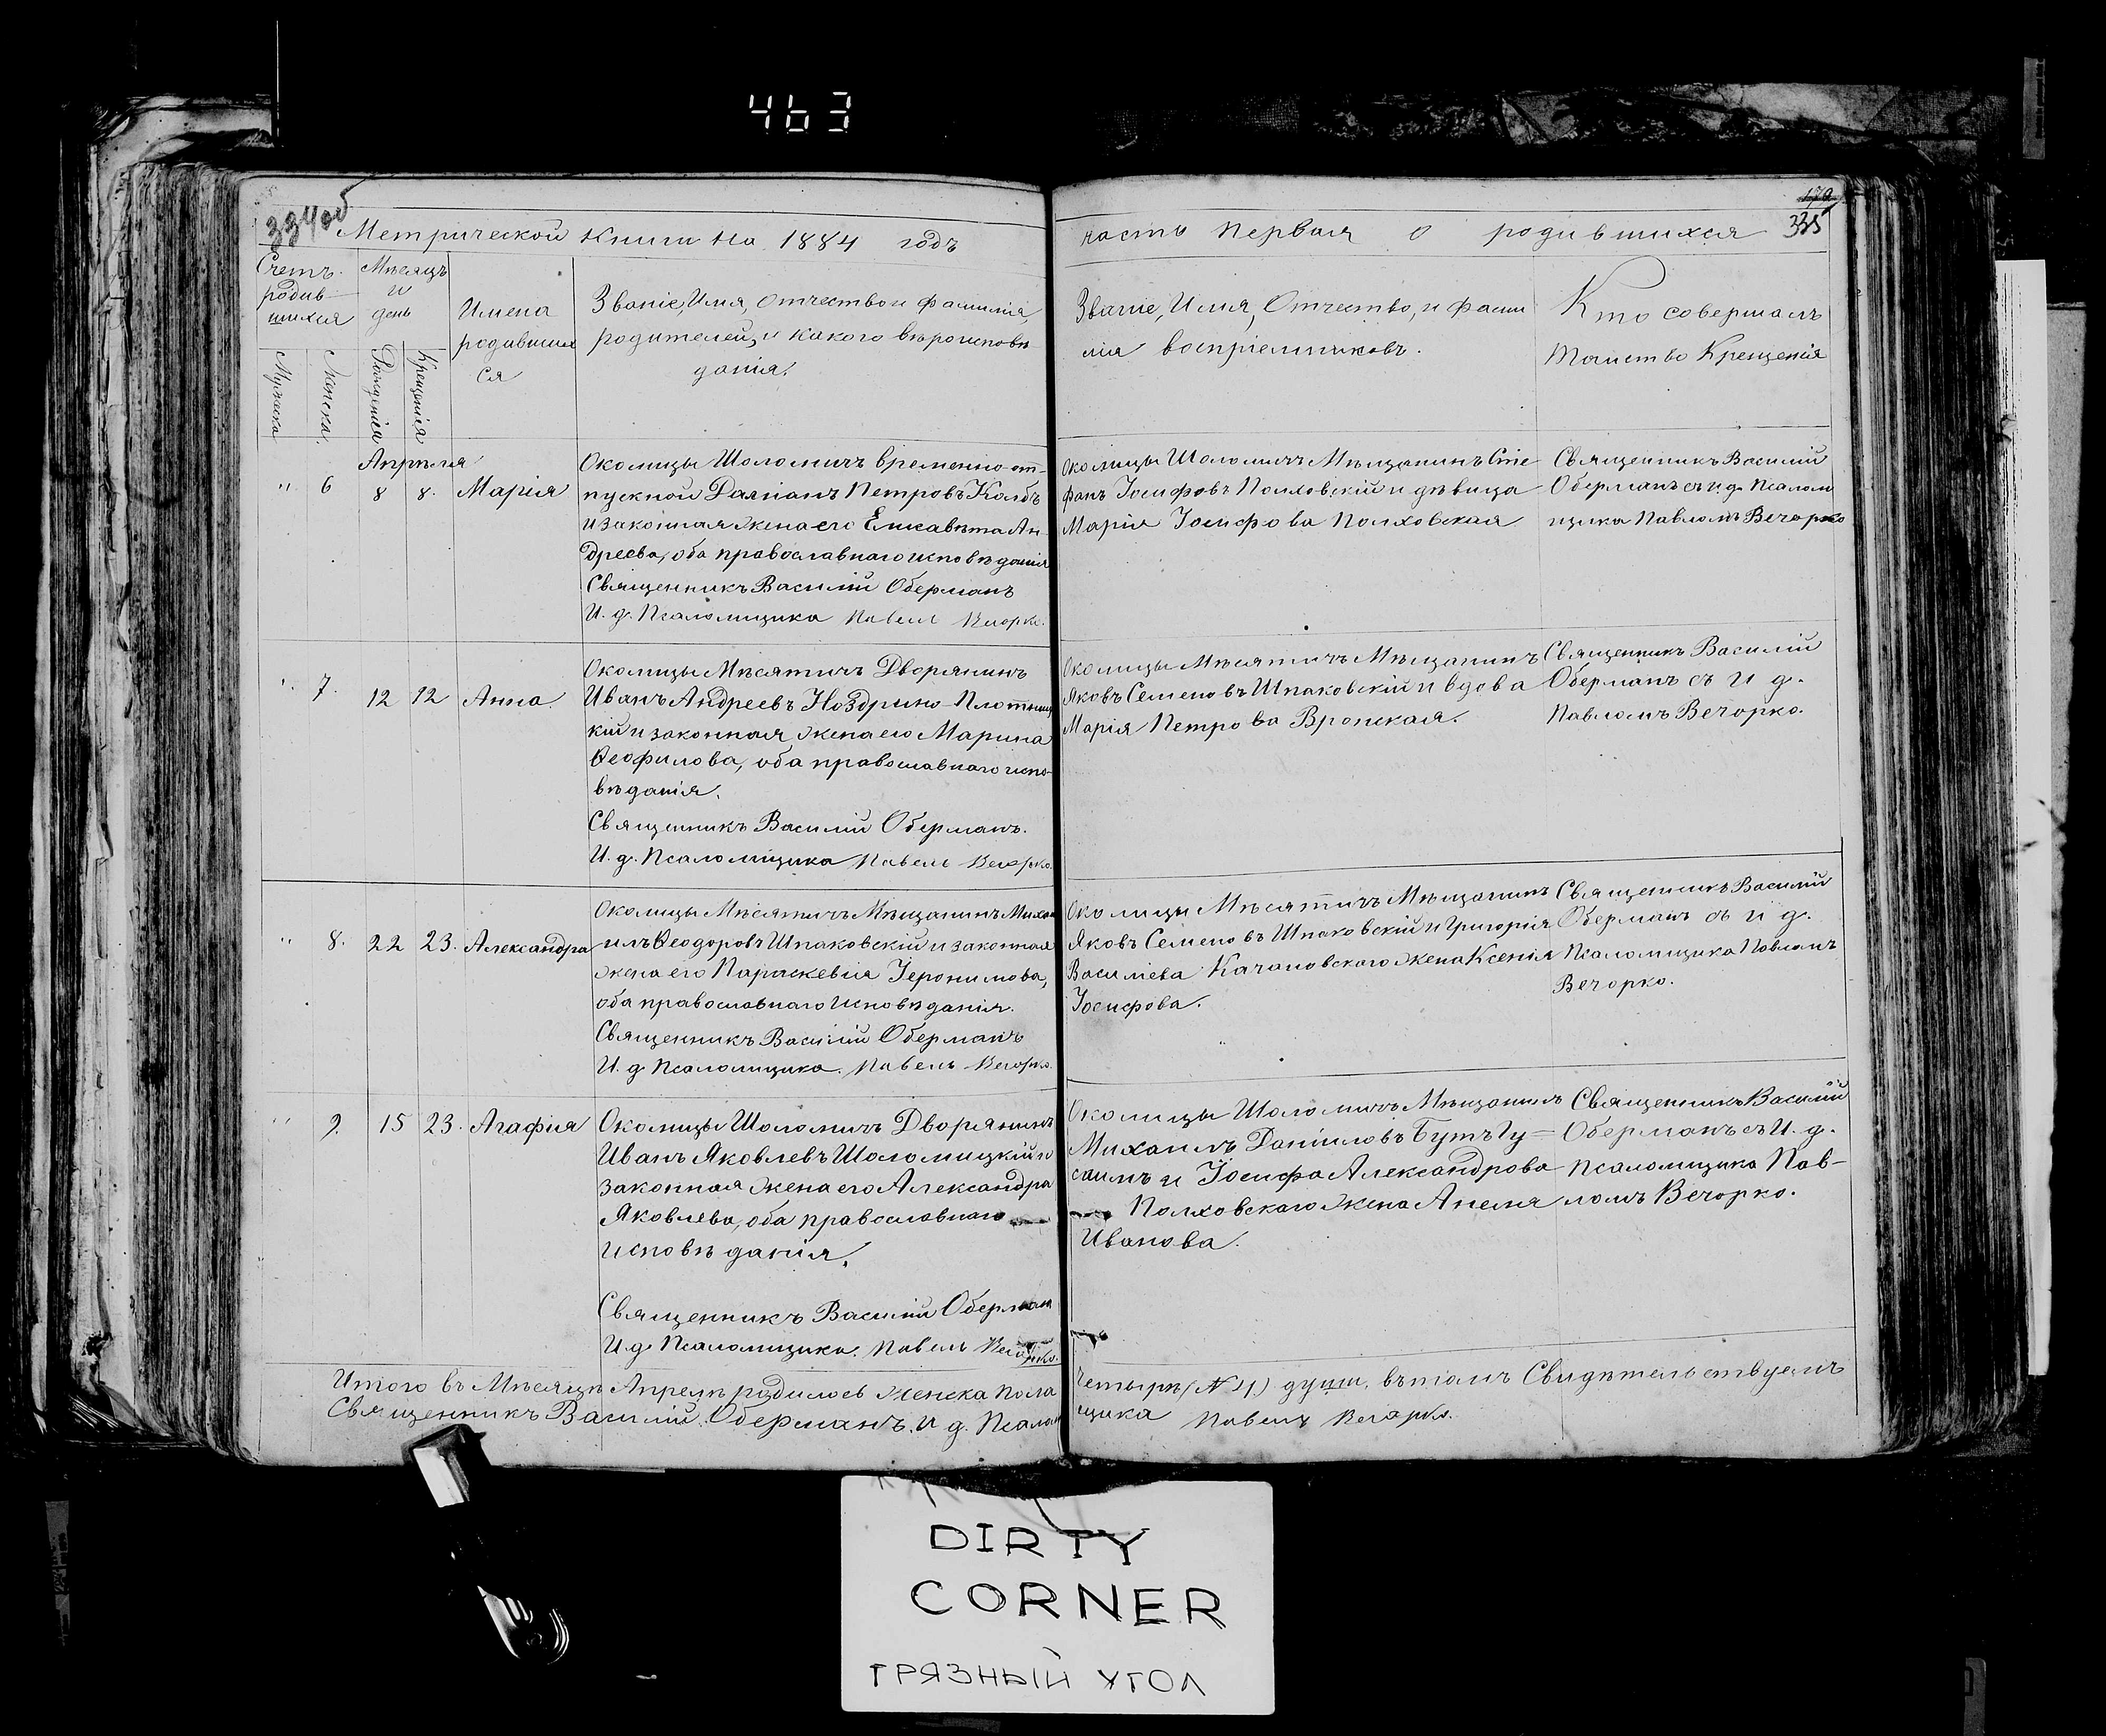 463
334об
Метрической Книги на 1884 годъ
Счетъ родив-шихся
Мужеска
Женска.
Мѣсяцъ и день
Рожденія
Крещенія
Имена родивших ся
Званіе, Имя, Отчество и фамилія,
родителей, и какого вѣроисповѣ
данія.
Апрѣля
" 6 8 8. Марія
Околицы Шоломичъ временно-от-
пускной Даміанъ Петровъ Колбъ
и законная жена его Елисавѣта Ан-
дреева, оба православнаго исповѣданія
Священникъ Василій Оберманъ
И. д. Псаломщика Павелъ Вечорко.
" 7. 12 12 Анна.
Околицы Мѣсятичъ Дворянинъ
Иванъ Андреевъ Ноздрино-Плотниц
кій и законная жена его Марина
Ѳеофилова, оба православнаго испо-
вѣданія.
Священникъ Василій Оберманъ.
И. д. Псаломщика Павелъ Вечорко.
" 8. 22 23. Александра
Околицы Мѣсятичъ Мѣщанинъ Миха
илъ Ѳеодоровъ Шпаковскій и законная
жена его Параскевія Іеронимова,
оба православнаго исповѣданія.
Священникъ Василій Оберманъ
И. д. Псаломщика. Павелъ Вечорко.
" 9. 15 23. Агафія
Околицы Шоломичъ Дворянинъ
Иванъ Яковлевъ Шоломицкій и
законная жена его Александра
Яковлева, оба православнаго
исповѣданія.
Священникъ Василій Оберман
И. д. Псаломщика. Павелъ Вечорко.
Итого въ Мѣсяцѣ Апрелѣ родилось женска пола
Священникъ Василій Оберманъ. И д. Псалом
179
335
часть первая о родившихся
Званіе, Имя, Отчество, и фами
лія воспріемниковъ.
Кто совершалъ
Таинство Крещенія
Околицы Шоломичъ Мѣщанинъ Сте
фанъ Іосифовъ Полховскій и дѣвица
Марія Іосифова Полховская
Священникъ Василій
Оберманъ съ и. д. Псалом
щика Павломъ Вечорко
Околицы Мѣсятичъ Мѣщанинъ
Яковъ Семеновъ Шпаковскій и вдова
Марія Петрова Вронская.
Священникъ Василій
Оберманъ съ и д.
Павломъ Вечорко.
Околицы Мѣсятичъ Мѣщанинъ
Яковъ Семеновъ Шпаковскій и Григорія
Василіева Качановскаго жена Ксенія
Іосифова.
Священникъ Василій
Оберманъ съ и д.
Псаломщика Павломъ
Вечорко.
Околицы Шоломичъ Мѣщанинъ
Михаилъ Даніиловъ Бутъ Гу=
саимъ и Іосифа Александрова
Полховскаго жена Анеля
Иванова.
Священникъ Василій
Оберманъ съ И. д.
Псаломщика Пав-
ломъ Вечорко.
Четырѣ (№ 4) души, въ томъ Свидѣтельствуемъ
щика Павелъ Вечорко.
DIRTY
CORNER
ГРЯЗНЫЙ УГОЛ